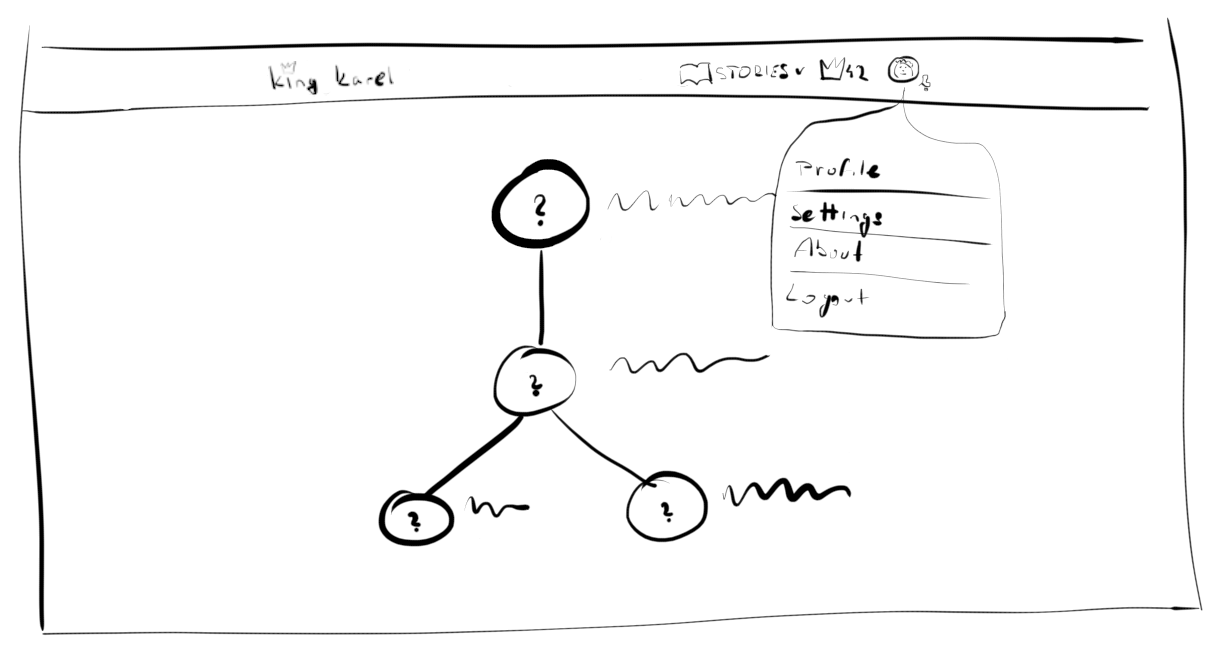 King Karel
STORIES
42
Profile
Settings
About
Logout
?
?
?
?